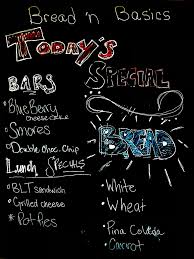 Bread 'n Basics
Today's
Special
BARS
• BlueBerry
cheesecake
• Smores
• Double Choc. Chip
Lunch Specials
• BLT sandwich
• Grilled cheese
* Pot Pies
BREAD
• White
• Wheat
• Pina Colada
• Carrot